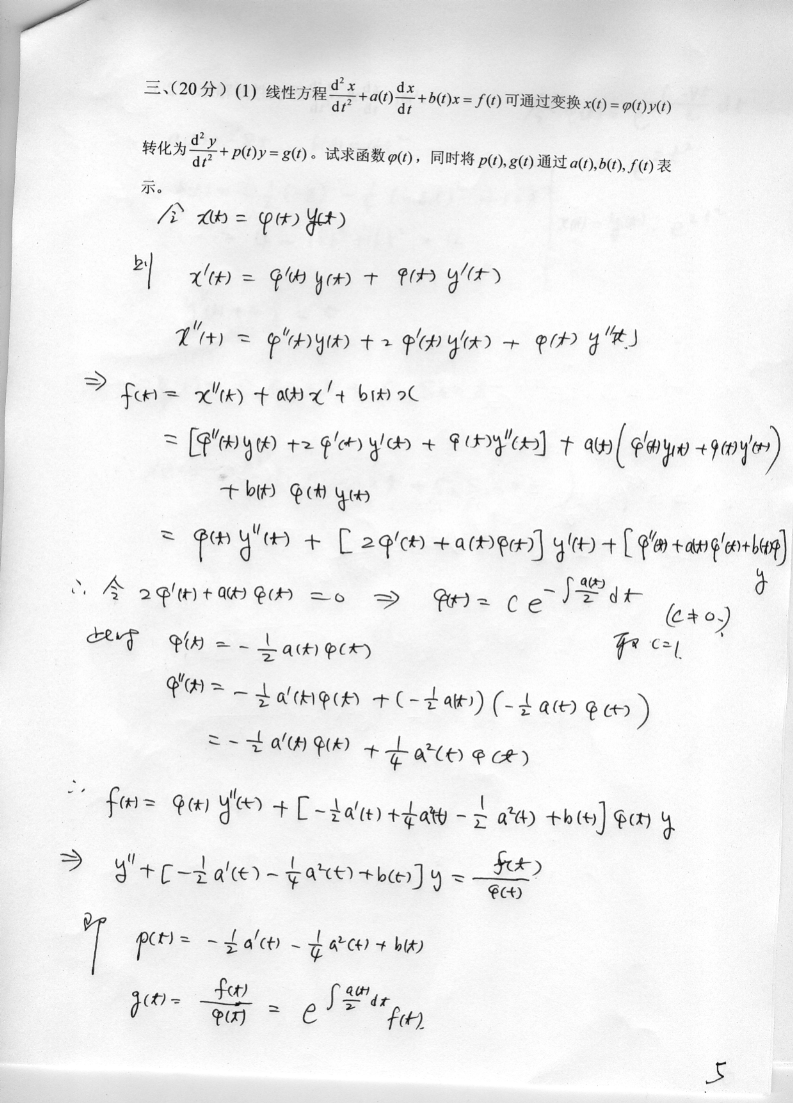 三、（20分）(1) 线性方程 d²x/dt² + a(t) dx/dt + b(t)x = f(t) 可通过变换 x(t) = φ(t)y(t)
转化为 d²y/dt² + p(t)y = g(t)。试求函数φ(t)，同时将 p(t), g(t) 通过 a(t), b(t), f(t) 表
示。
令 x(t) = φ(t) y(t)
则 x'(t) = φ'(t) y(t) + φ(t) y'(t)
x''(t) = φ''(t)y(t) + 2 φ'(t)y'(t) + φ(t) y''(t)
⇒ f(t) = x''(t) + a(t) x' + b(t) x
= [φ''(t)y(t) + 2 φ'(t) y'(t) + φ(t)y''(t)] + a(t)(φ'(t)y(t) + φ(t)y'(t))
+ b(t) φ(t) y(t)
= φ(t) y''(t) + [2φ'(t) + a(t)φ(t)] y'(t) + [φ''(t) + a(t)φ'(t) + b(t)φ] y
∴ 令 2φ'(t) + a(t) φ(t) = 0 ⇒ φ(t) = c e^{-∫ a(t)/2 dt} (c ≠ 0.)
取 c=1.
φ'(t) = - 1/2 a(t) φ(t)
φ''(t) = - 1/2 a'(t)φ(t) + (- 1/2 a(t)) (- 1/2 a(t) φ(t))
= - 1/2 a'(t) φ(t) + 1/4 a²(t) φ(t)
∴ f(t) = φ(t) y''(t) + [- 1/2 a'(t) + 1/4 a²(t) - 1/2 a²(t) + b(t)] φ(t) y
⇒ y'' + [- 1/2 a'(t) - 1/4 a²(t) + b(t)] y = f(t)/φ(t)
即 p(t) = - 1/2 a'(t) - 1/4 a²(t) + b(t)
g(t) = f(t)/φ(t) = e^{∫ a(t)/2 dt} f(t).
5